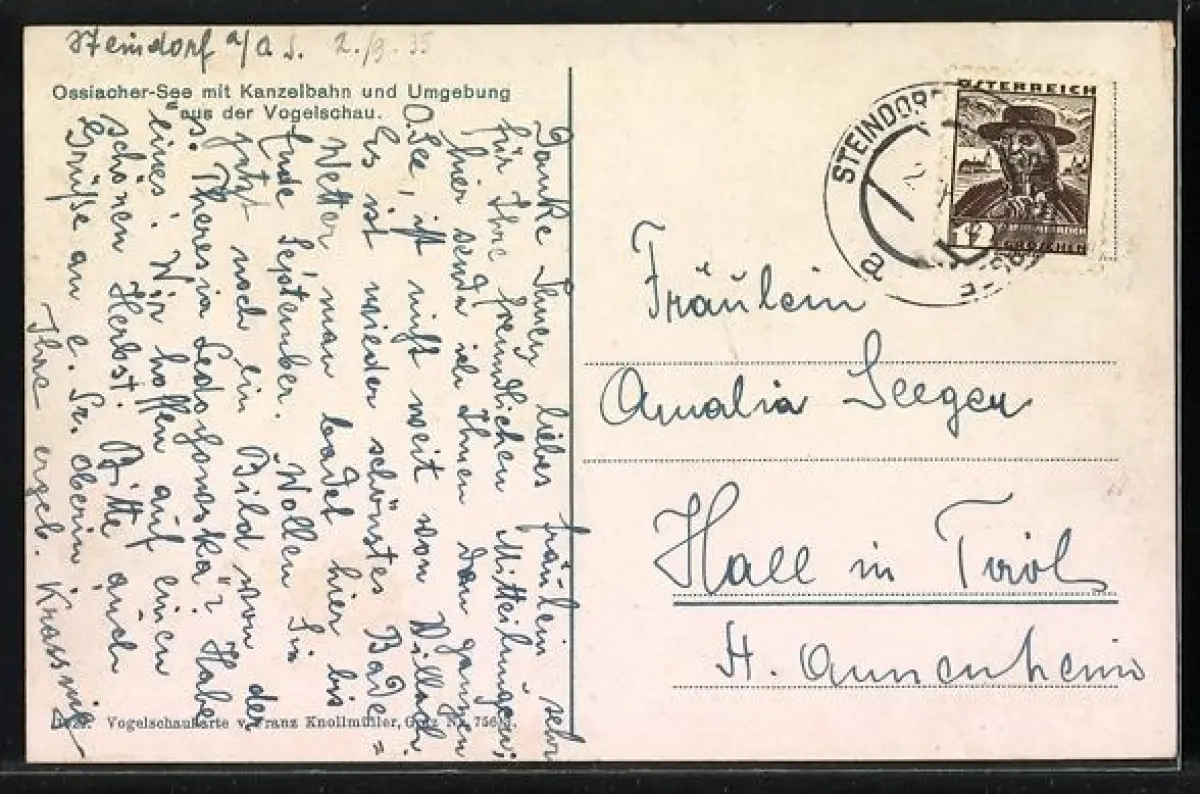 Steindorf a/O S. 2./9. 35
Ossiacher-See mit Kanzelbahn und Umgebung
aus der Vogelschau.
Danke Ihnen liebes Fräulein sehr
für Ihre freundlichen Mitteilungen;
hier sende ich Ihnen den ganzen
O See, ist nicht weit von Villach.
Es ist wieder schönstes Bade=
Wetter man badet hier bis
Ende September. Wollen Sie
jetzt noch ein Bild von der
s. Theresia Ledochowska"? Habe
"eines". Wir hoffen auf einen
schönen Herbst. Bitte auch
Grüße an e. Sr. Oberin und
Ihre ergeb. Krassnig
Vogelschaukarte v. Franz Knollmüller, Graz Nr. 756
STEINDORF
a
ÖSTERREICH
12 GROSCHEN
Fräulein
Amalia Seeger
Hall in Tirol
St. Annenheim